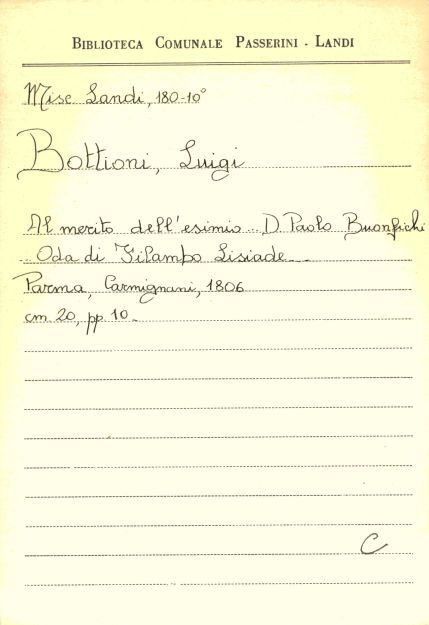 BIBLIOTECA COMUNALE PASSERINI - LANDI
Misc Landi, 180-10°
Bottioni, Luigi
Al merito dell'esimio... D. Paolo Buonfichi
... Oda di Filampo Lisiade...
Parma, Carmignani, 1806
cm. 20, pp 10.
C